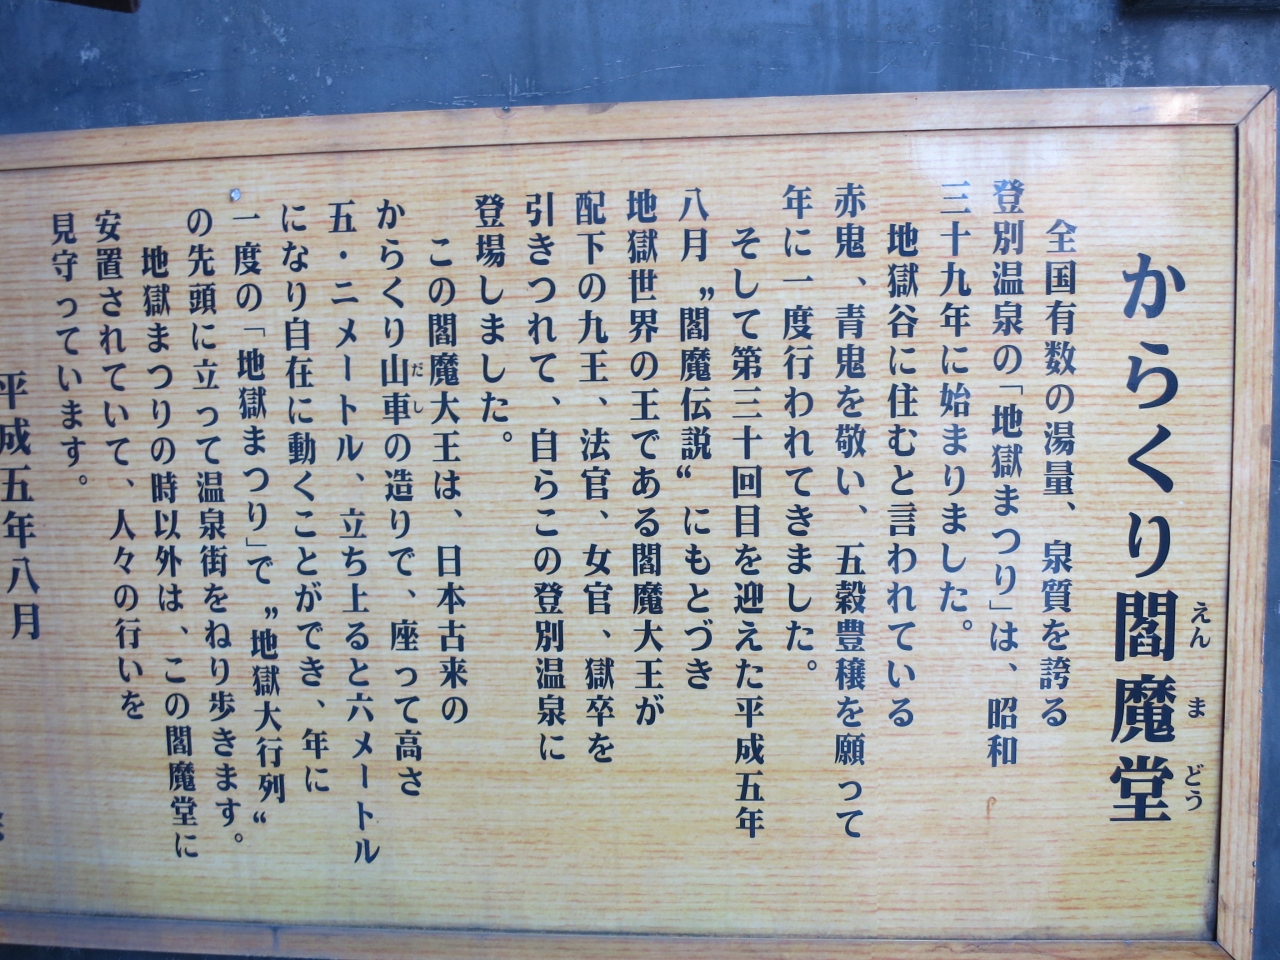 からくり閻魔堂
えんまどう
全国有数の湯量、泉質を誇る
登別温泉の「地獄まつり」は、昭和
三十九年に始まりました。
地獄谷に住むと言われている
赤鬼、青鬼を敬い、五穀豊穣を願って
年に一度行われてきました。
そして第三十回目を迎えた平成五年
八月〝閻魔伝説〟にもとづき
地獄世界の王である閻魔大王が
配下の九王、法官、女官、獄卒を
引きつれて、自らこの登別温泉に
登場しました。
この閻魔大王は、日本古来の
からくり山車の造りで、座って高さ
だし
五・二メートル、立ち上ると六メートル
になり自在に動くことができ、年に
一度の「地獄まつり」で〝地獄大行列〟
の先頭に立って温泉街をねり歩きます。
地獄まつりの時以外は、この閻魔堂に
安置されていて、人々の行いを
見守っています。
平成五年八月